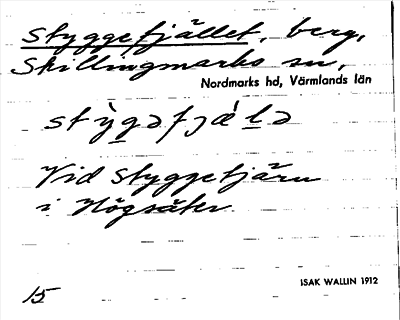 Styggefjället, berg,
Skillingmarks sn,
Nordmarks hd, Värmlands län
stỳgəfjæ̀lə
Vid Styggetjärn
i Högsäter.
ISAK WALLIN 1912
15